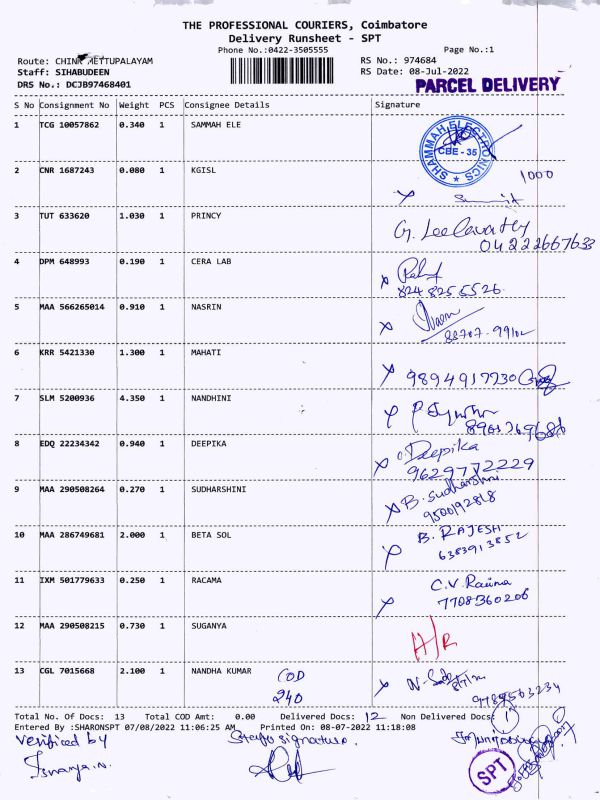 THE PROFESSIONAL COURIERS, Coimbatore
Delivery Runsheet - SPT
Phone No.:0422-3505555 Page No.:1
Route: METTUPALAYAM RS No.: 974684
Staff: SIHABUDEEN RS Date: 08-Jul-2022
DRS No.: DCJB97468401 PARCEL DELIVERY
S No Consignment No Weight PCS Consignee Details Signature
1 TCG 10057862 0.340 1 SAMMAH ELE
SHAMMAH ELECTRONICS
CBE - 35
2 CNR 1687243 0.080 1 KGISL 1000
3 TUT 633620 1.030 1 PRINCY
04222667633
4 DPM 648993 0.190 1 CERA LAB
824 825 5526
5 MAA 566265014 0.910 1 NASRIN
6 KRR 5421330 1.300 1 MAHATI
9894917730
7 SLM 5200936 4.350 1 NANDHINI
8 EDQ 22234342 0.940 1 DEEPIKA Deepika
9629772229
9 MAA 290508264 0.270 1 SUDHARSHINI B. Sudharshini
9500192818
10 MAA 286749681 2.000 1 BETA SOL B. RAJESH
6383913852
11 IXM 501779633 0.250 1 RACAMA C.V.
7708360206
12 MAA 290508215 0.730 1 SUGANYA A/R
13 CGL 7015668 2.100 1 NANDHA KUMAR COD
240 9789563234
Total No. Of Docs: 13 Total COD Amt: 0.00 Delivered Docs: 12 Non Delivered Docs: 1
Entered By :SHARONSPT 07/08/2022 11:06:25 AM Printed On: 08-07-2022 11:18:08
Verified by Staff signature.
SPT